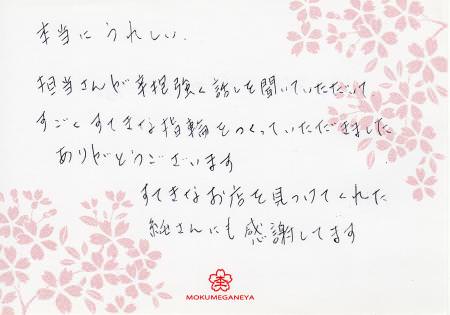 本当にうれしい.
担当さんが辛抱強く話しを聞いていただいて
すごくすてきな指輪をつくっていただきました
ありがとうございます
すてきなお店を見つけてくれた
さんにも感謝してます
MOKUMEGANEYA